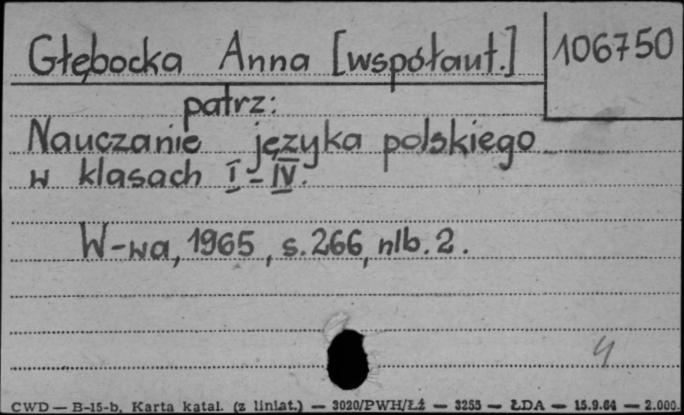 Głębocka Anna [współaut.] 106750
patrz:
Nauczanie języka polskiego
w klasach I-IV.
W-wa, 1965, s. 266, nlb. 2.
4
CWD — B-15-b, Karta katal. (z liniat.) — 3020/PWH/Łż — 3255 — ŁDA — 15.9.64 — 2.000